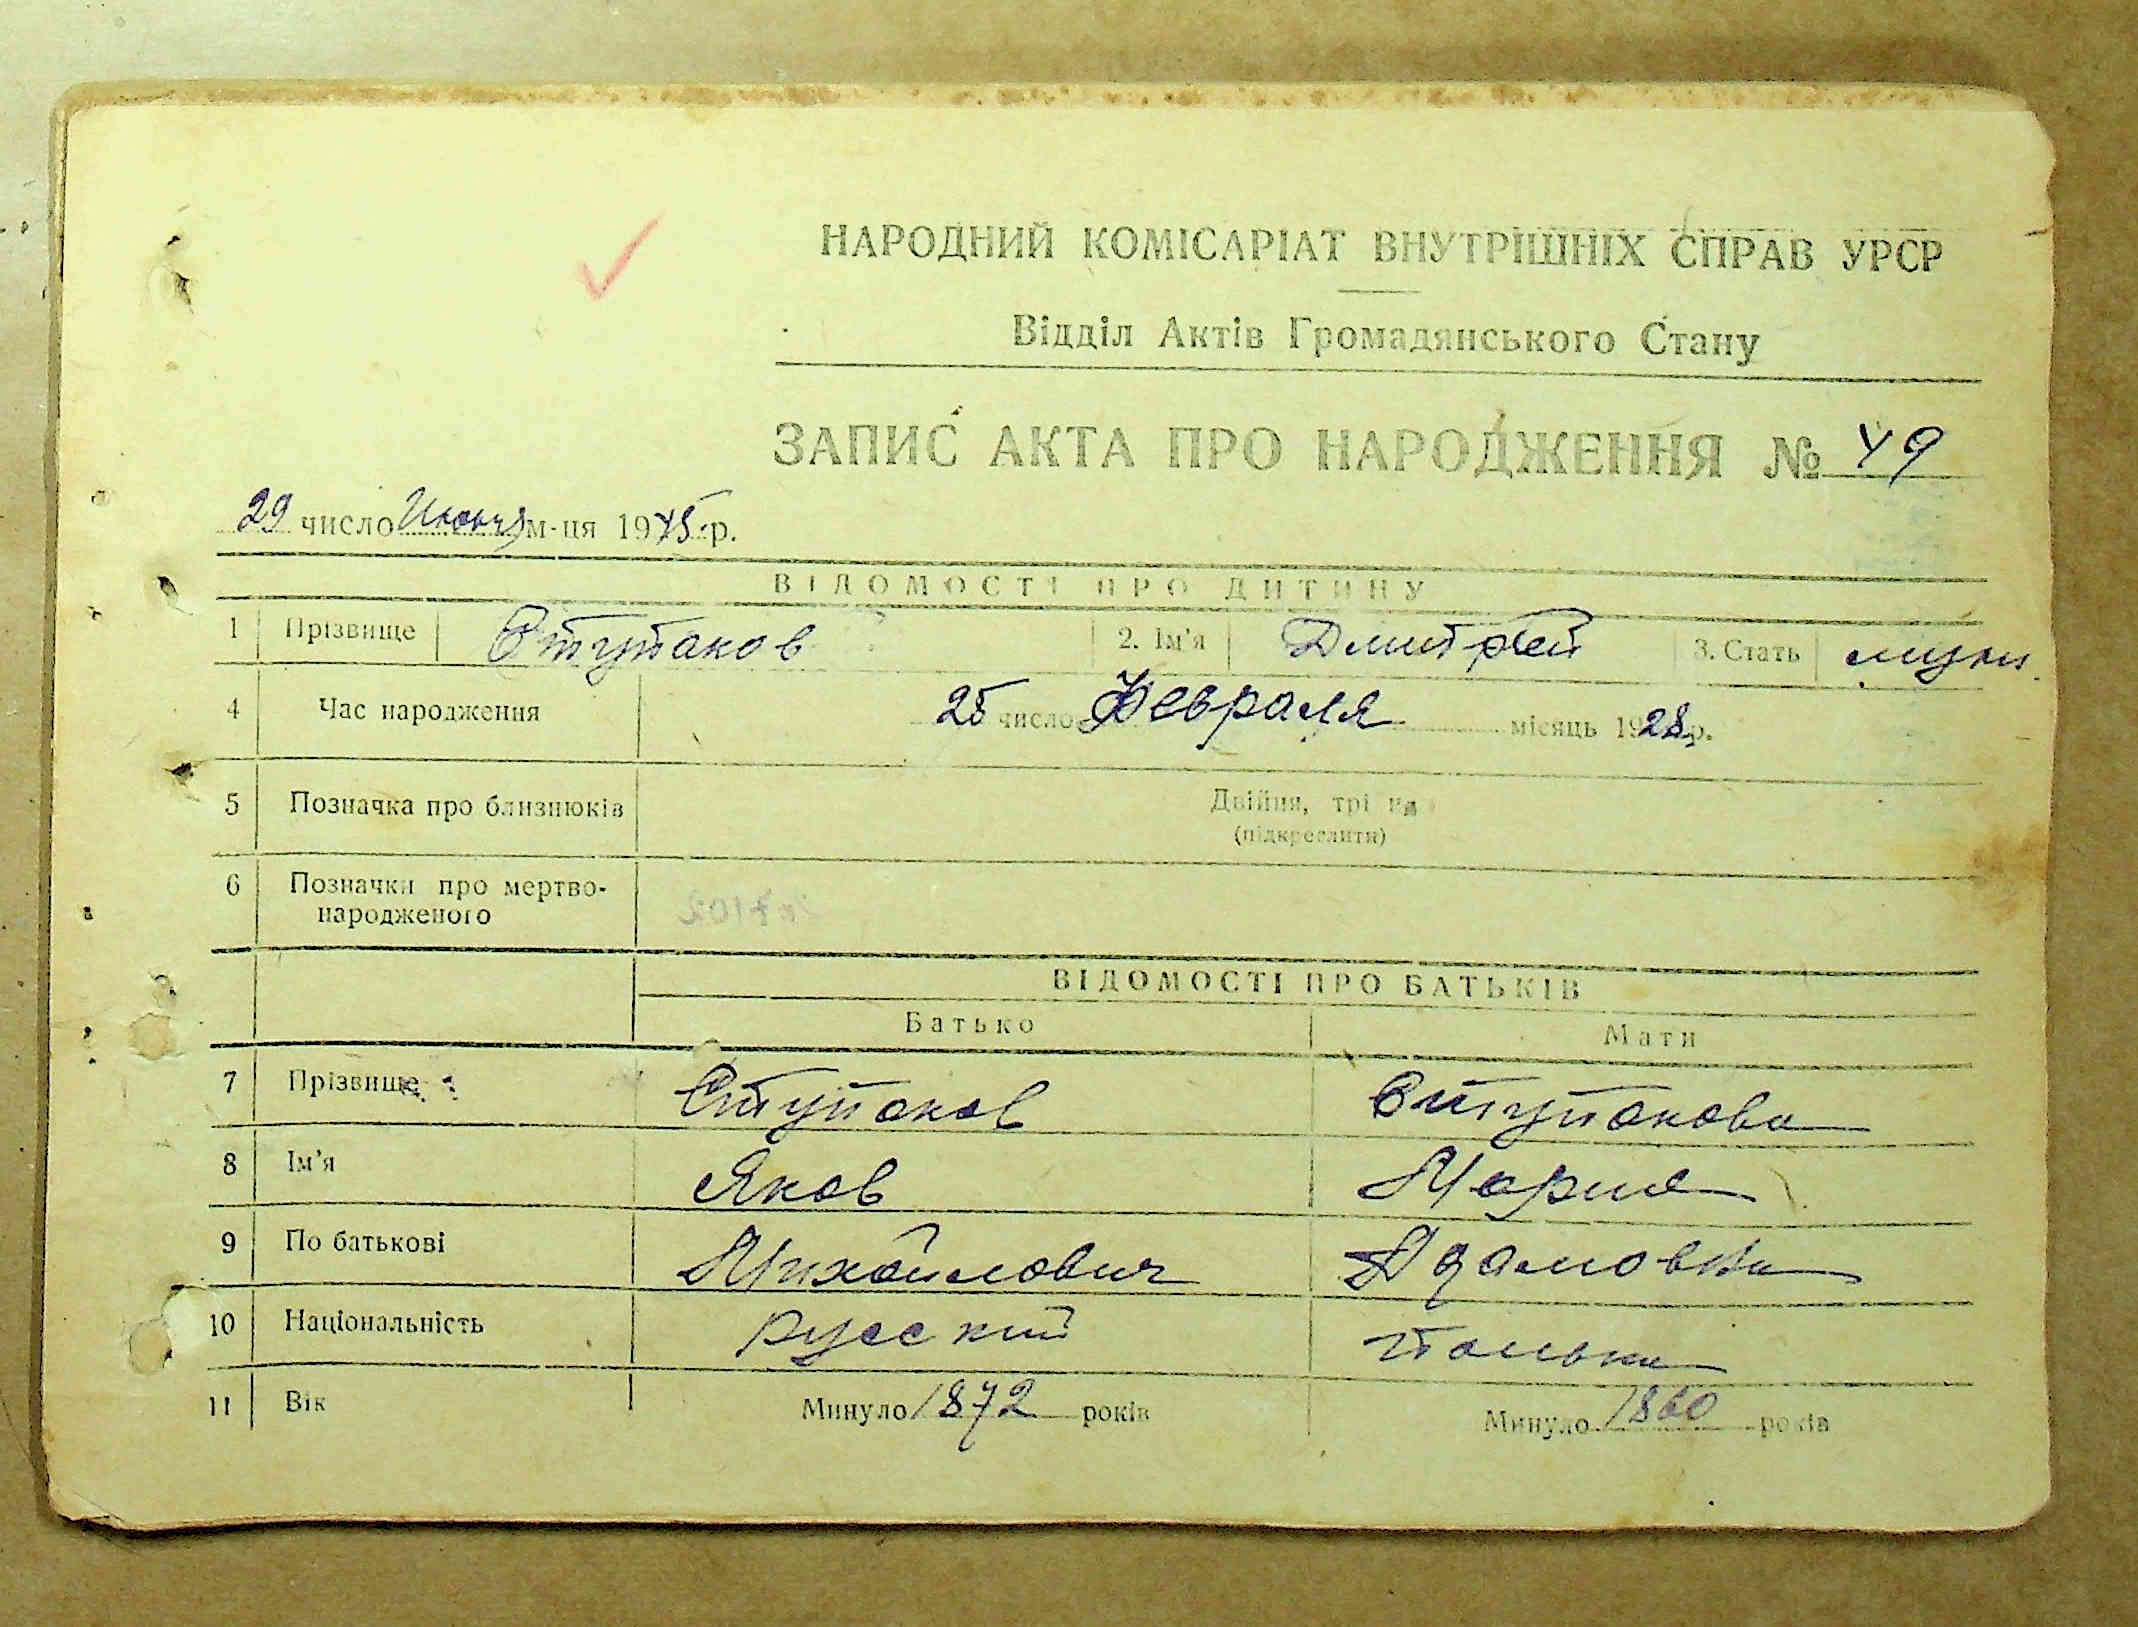 НАРОДНИЙ КОМІСАРІАТ ВНУТРІШНІХ СПРАВ УРСР
Відділ Актів Громадянського Стану
ЗАПИС АКТА ПРО НАРОДЖЕННЯ № 49
29 число Июня м-ця 1945 р.
ВІДОМОСТІ ПРО ДИТИНУ
1 Прізвище Ступаков 2. Ім'я Дмитрей 3. Стать мужч.
4 Час народження 25 число Февраля місяць 1928 р.
5 Позначка про близнюків Двійня, трі
(підкреслити)
6 Позначки про мертво-
народженого
ВІДОМОСТІ ПРО БАТЬКІВ
Батько Мати
7 Прізвище Ступаков Ступакова
8 Ім'я Яков Мария
9 По батькові Михайлович Адамовна
10 Національність русский полька
11 Вік Минуло 1872 років Минуло 1860 років